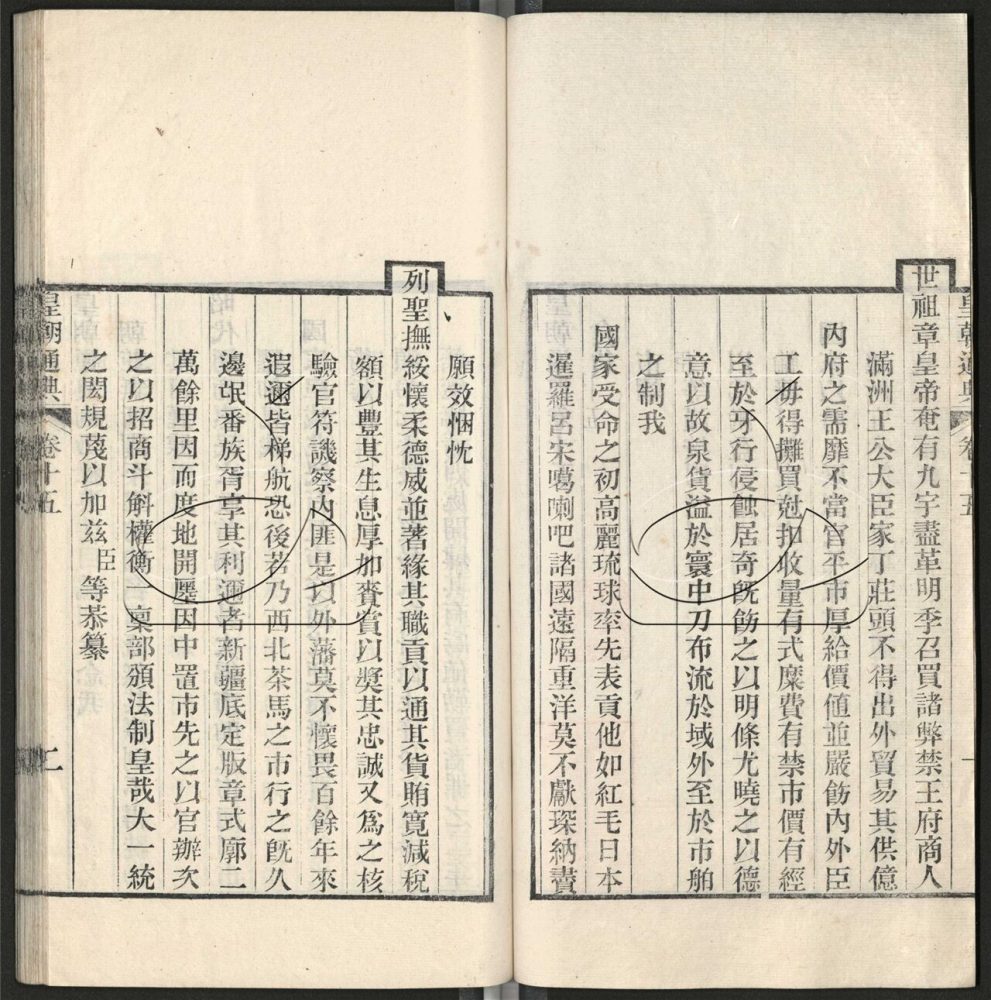 世祖章皇帝奄有九宇盡革明季召買諸弊禁王府商人
滿洲王公大臣家丁莊頭不得出外貿易其供億
內府之需靡不當官平市厚給價値並嚴飭內外臣
工毋得攤買尅扣收量有式糜費有禁市價有經
至於牙行侵蝕居奇旣飭之以明條尤曉之以德
意以故泉貨溢於寰中刀布流於域外至於市舶
之制我
國家受命之初高麗琉球率先表貢他如紅毛日本
暹羅呂宋噶喇吧諸國遠隔重洋莫不獻琛納賮
願效悃忱
列聖撫綏懷柔德威並著緣其職貢以通其貨賄寬減稅
額以豐其生息厚加賚賞以奬其忠誠又爲之核
驗官符譏察內匪是以外藩莫不懷畏百餘年來
遐邇皆梯航恐後若乃西北茶馬之市行之旣久
邊氓番族胥享其利邇者新疆底定版章式廓二
萬餘里因而度地開㕓因中置市先之以官辦次
之以招商斗斛權衡一稟部頒法制皇哉大一統
之閎規蔑以加茲臣等恭纂
皇朝通典
卷十五